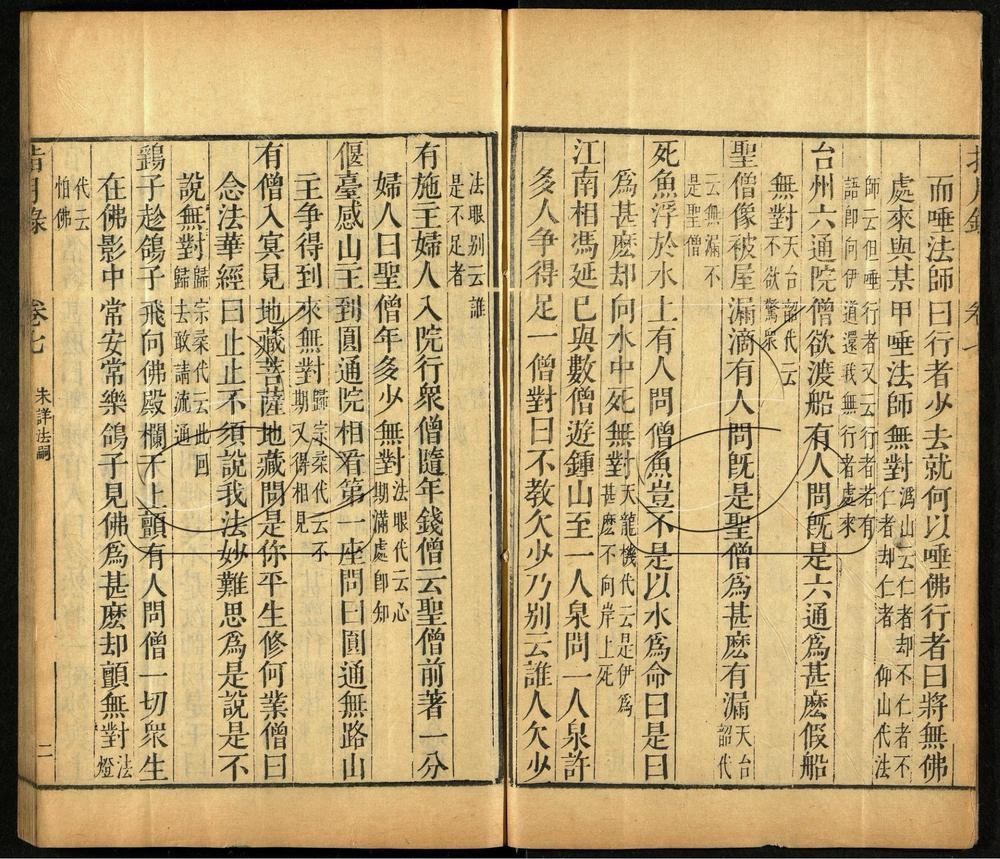 而唾法師曰行者少去就何以唾佛行者曰將無佛
處來與某甲唾法師無對溈山云仁者却不仁者不仁者却仁者 仰山代法
師云但唾行者又云行者若有語即向伊道還我無行者處來
台州六通院僧欲渡船有人問既是六通爲甚麽假船
無對天台韶代云不欲驚衆
聖僧像被屋漏滴有人問既是聖僧爲甚麽有漏天台韶代
云無漏不是聖僧
死魚浮於水上有人問僧魚豈不是以水爲命曰是曰
爲甚麽却向水中死無對天龍機代云是伊爲甚麽不向岸上死
江南相馮延巳與數僧遊鍾山至一人泉問一人泉許
多人爭得足一僧對曰不教欠少乃别云誰人欠少
法眼别云誰是不足者
有施主婦人入院行衆僧隨年錢僧云聖僧前著一分
婦人曰聖僧年多少無對法眼代云心期滿處即知
偃臺感山主到圓通院相看第一座問曰圓通無路山
主爭得到來無對歸宗柔代云不期又得相見
有僧入冥見地藏菩薩地藏問是你平生修何業僧曰
念法華經曰止止不須說我法妙難思爲是說是不
說無對歸宗柔代云此回歸去敢請流通
鷂子趁鴿子飛向佛殿欄干上顫有人問僧一切衆生
在佛影中常安常樂鴿子見佛爲甚麽却顫無對法燈
代云怕佛
指月錄 卷七 未詳法嗣 二